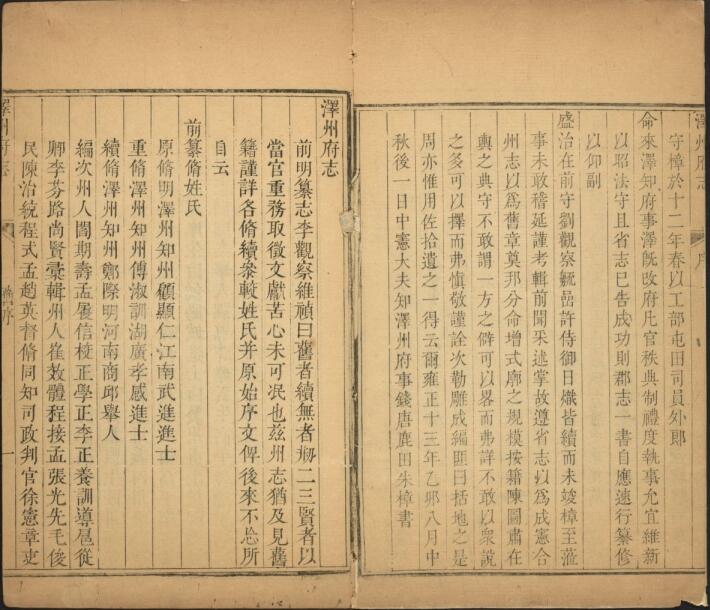 澤州府志 序
守樟於十二年春以工部屯田司員外郎
命來澤知府事澤旣改府凡官秩典制禮度執事允宜維新
以昭法守且省志巳告成功則郡志一書自應速行纂修
以仰副
盛治在前守劉觀察毓嵒許侍御日熾皆續而未竣樟至蒞
事未敢稽延謹考輯前聞采述掌故遵省志以爲成憲合
州志以爲舊章莫邦分命增式廓之規模按籍陳圖肅在
輿之典守不敢謂一方之僻可以畧而弗詳不敢以衆說
之多可以擇而弗愼敬謹詮次勒成編匪曰括地之是
周亦惟用佐拾遺之一得云爾雍正十三年乙卯八月中
秋後一日中憲大夫知澤州府事錢唐鹿田朱樟書
澤州府志
前明纂志李觀察維禎曰舊者續無者剏二三賢者以
當官重務取徵文獻苦心未可冺也兹州志猶及見舊
籍謹詳各脩續叅較姓氏并原始序文俾後來不忘所
自云
前纂脩姓氏
原脩明澤州知州顧顯仁江南武進進士
重脩澤州知州傅淑訓湖廣孝感進士
續脩澤州知州鄭際明河南商邱舉人
編次州人閻期壽孟屢信校正學正李正養訓導扈從
卿李芬路尚賢彙輯州人崔效體程接孟張光先毛俊
民陳治統程式孟趙英督脩同知司政判官徐憲章吏
澤州府志 舊序 一